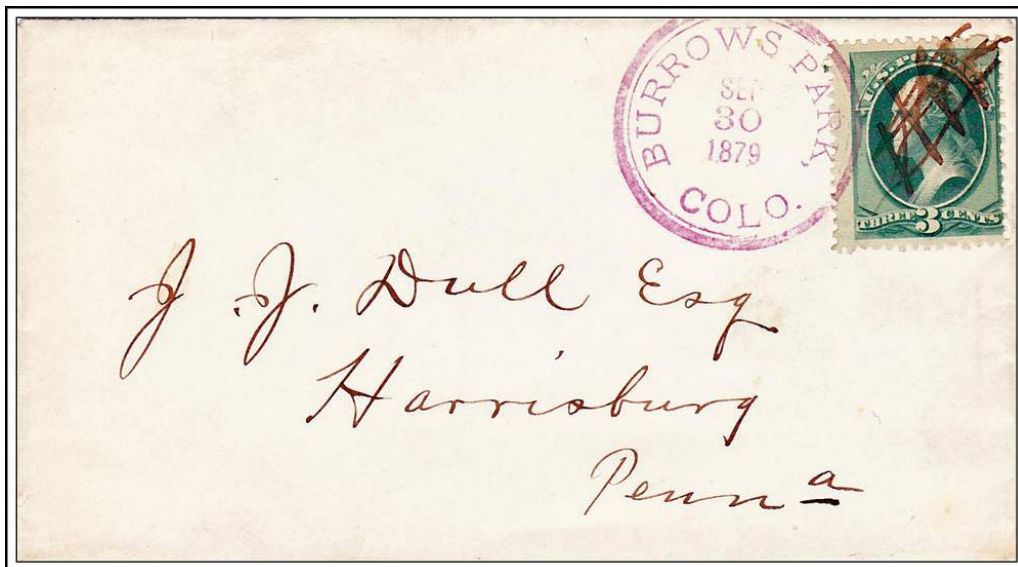 BURROWS PARK,
SEP
30
1879
COLO.
U.S. POSTAGE
THREE 3 CENTS
J. J. Dull Esq
Harrisburg
Penn a